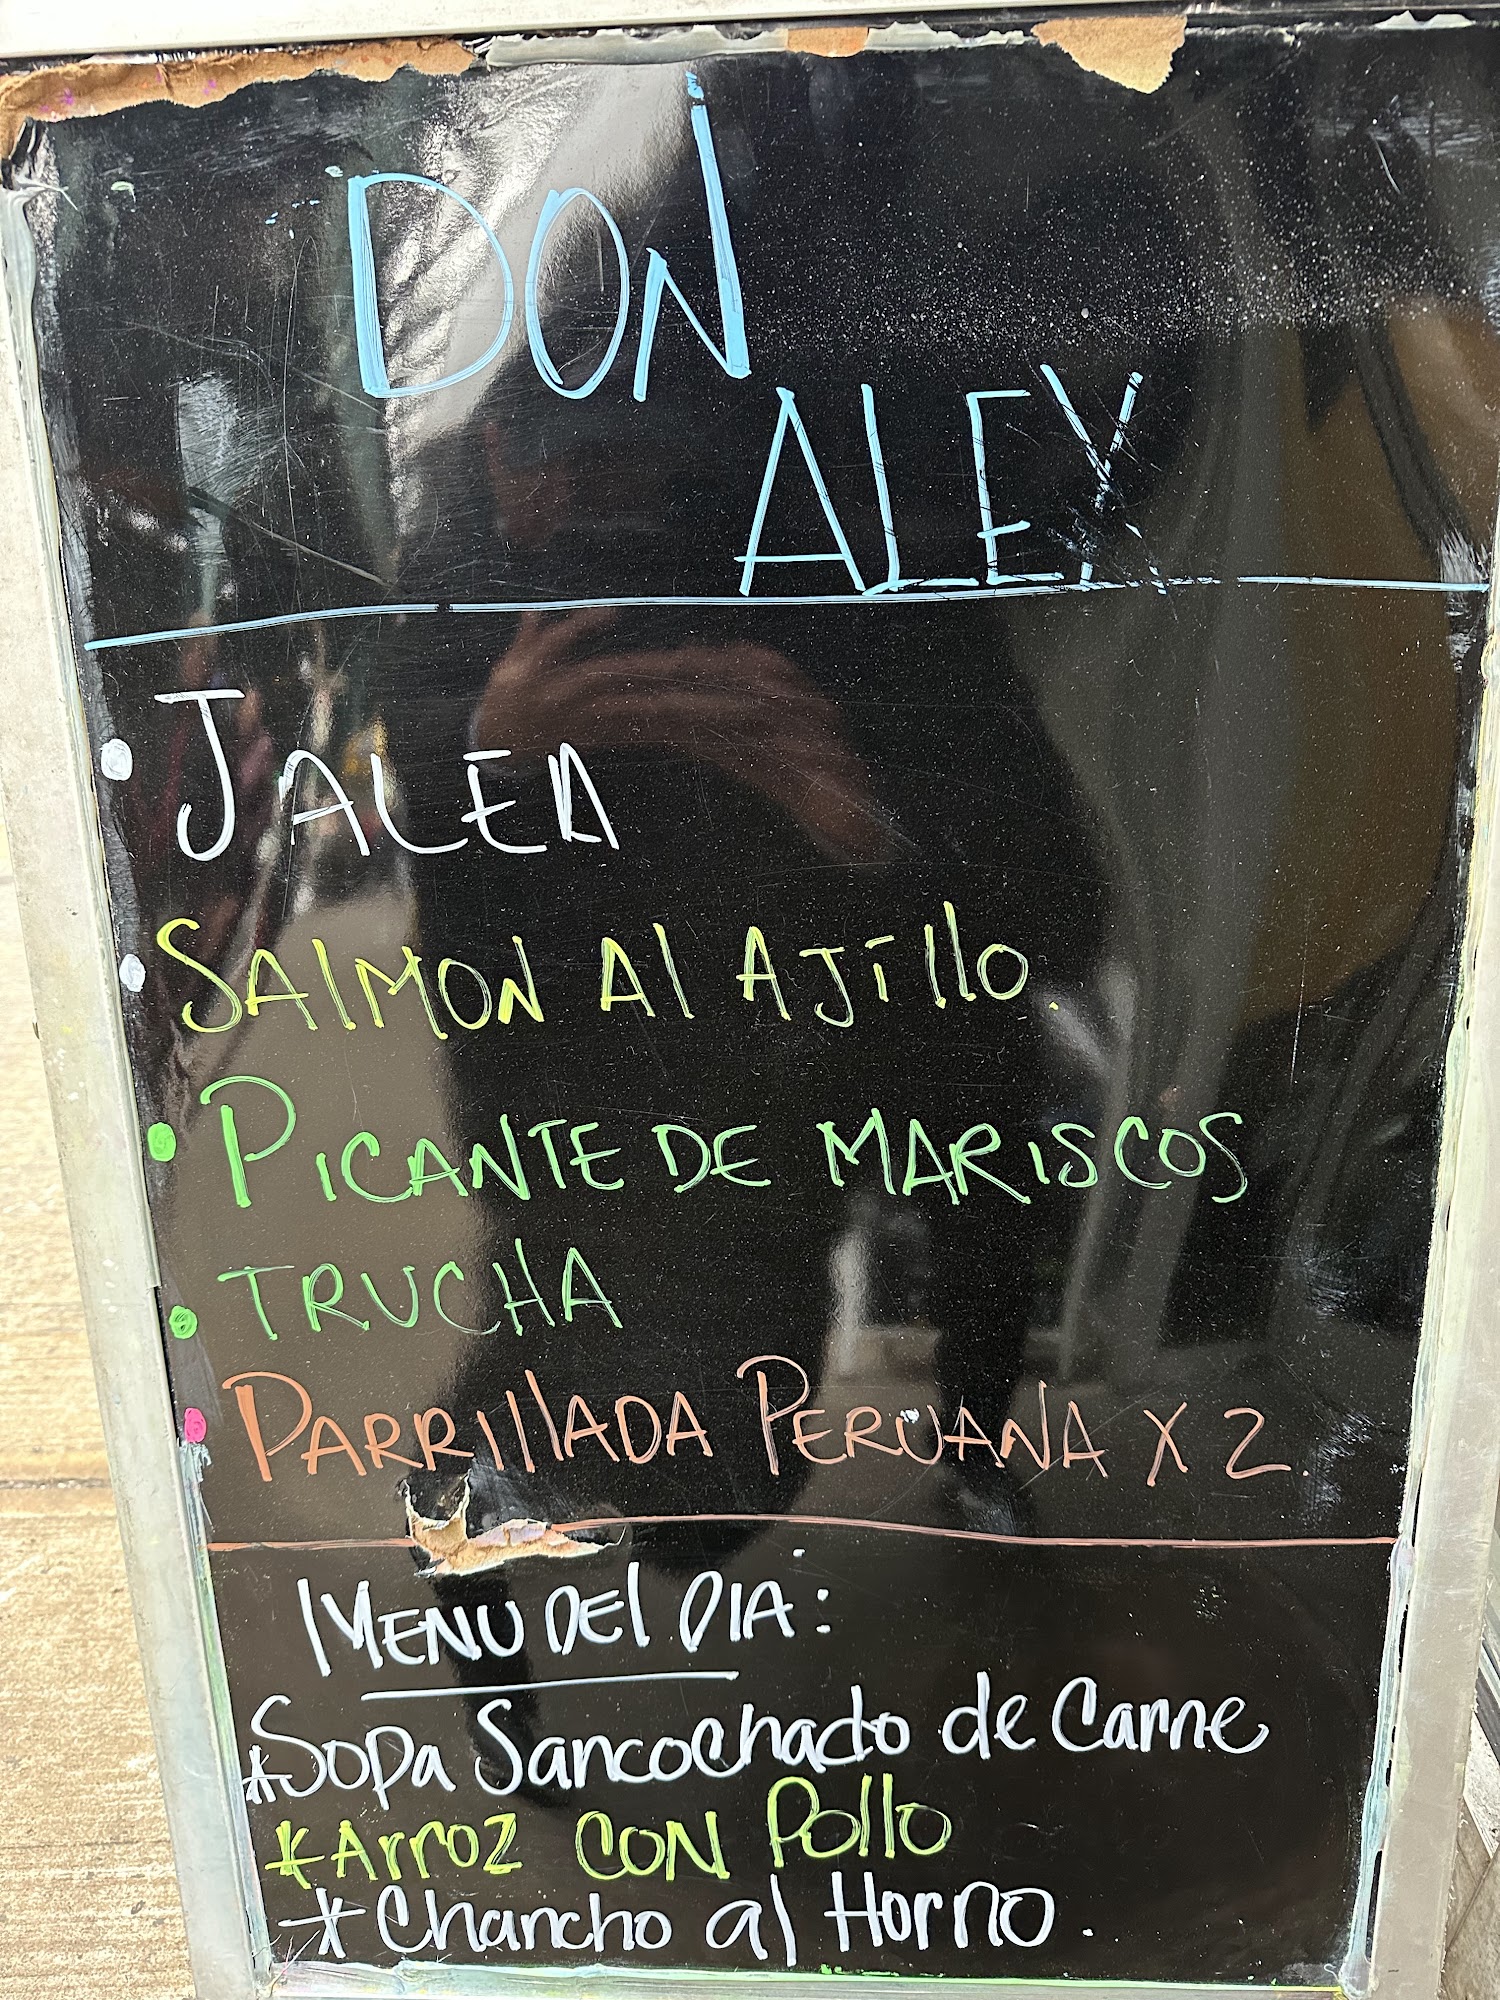 DON
ALEX
• JALEA
• SALMON Al AJillO.
• PICANTE DE MARISCOS
• TRUCHA
• PARRIllADA PERUANA X 2.
MENU DEl DIA:
*Sopa Sancochado de Carne
*Arroz CON Pollo
*Chancho al Horno.